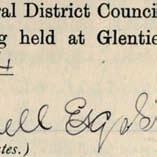 ral District Council
g held at Glentie
4
ell Esq
tes.)